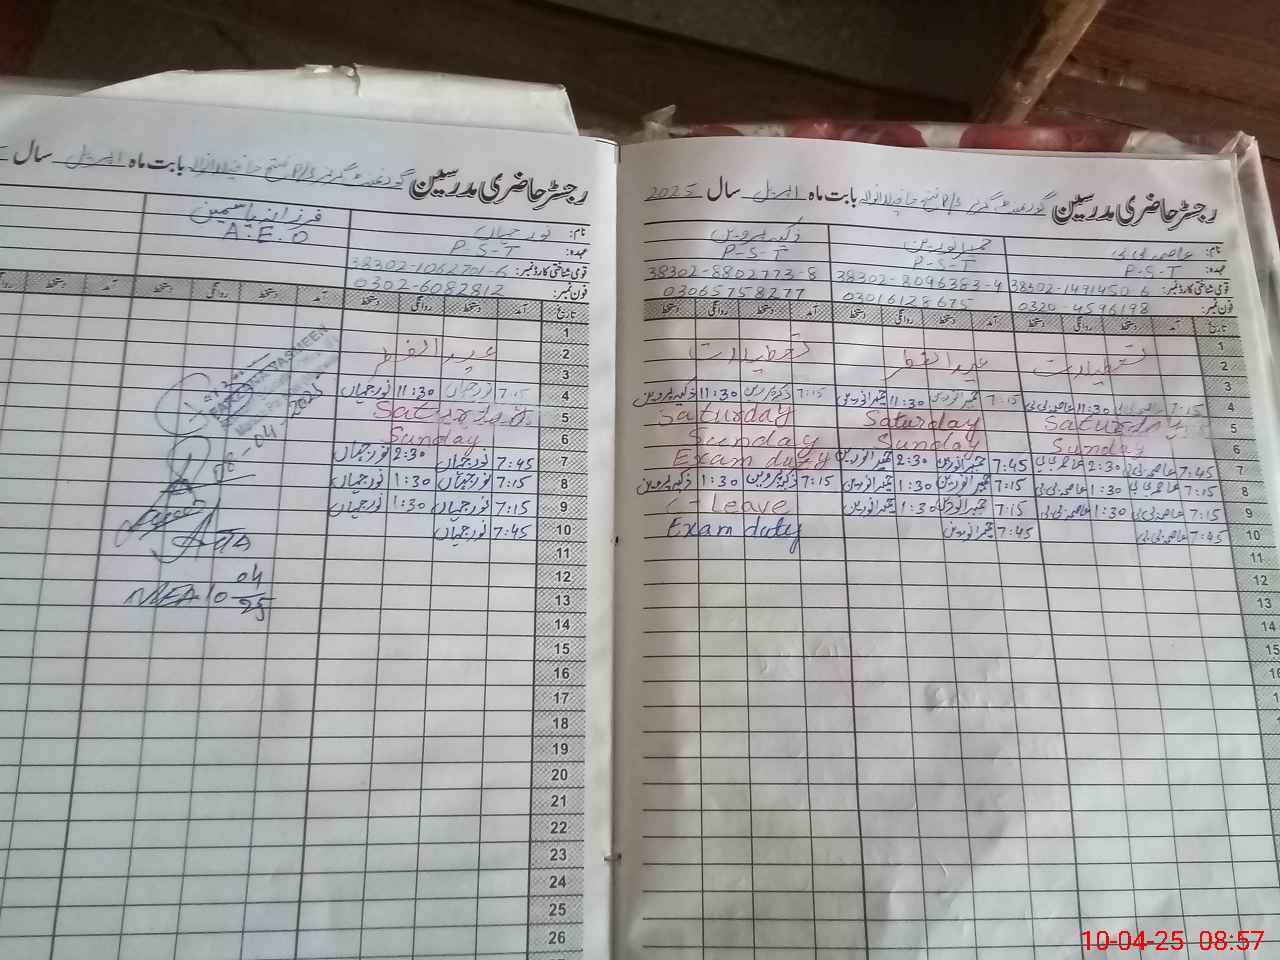 رجسٹر حاضری مدرسین گورنمنٹ گرلز P/S بابت ماہ اپریل سال 2025
نام: عاصمہ بی بی
حمیرا نورین
ذکیہ پروین
عہدہ: P-S-T
P-S-T
P-S-T
قومی شناختی کارڈ نمبر: 38302-1491450-6
38302-8096383-4
38302-8802773-8
فون نمبر: 0320-4596198
03016128675
03065758277
تاریخ آمد دستخط روانگی دستخط آمد دستخط روانگی دستخط آمد دستخط روانگی دستخط
1
2 تعطیلات عید الفطر تعطیلات
3
4 7:15 عاصمہ بی بی 11:30 عاصمہ بی بی 7:15 حمیرا نورین 11:30 حمیرا نورین 7:15 ذکیہ پروین 11:30 ذکیہ پروین
5 Saturday Saturday Saturday
6 Sunday Sunday Sunday
7 7:45 عاصمہ بی بی 2:30 عاصمہ بی بی 7:45 حمیرا نورین 2:30 حمیرا نورین Exam duty
8 7:15 عاصمہ بی بی 1:30 عاصمہ بی بی 7:15 حمیرا نورین 1:30 حمیرا نورین 7:15 ذکیہ پروین 1:30 ذکیہ پروین
9 7:15 عاصمہ بی بی 1:30 عاصمہ بی بی 7:15 حمیرا نورین 1:30 حمیرا نورین C-Leave
10 7:45 عاصمہ بی بی 7:45 حمیرا نورین Exam duty
11
12
13
14
15
16
رجسٹر حاضری مدرسین گورنمنٹ گرلز P/S بابت ماہ اپریل سال
نام: نور جہاں
فرزانہ یاسمین
عہدہ: P-S-T
A.E.O
قومی شناختی کارڈ نمبر: 38302-1062701-6
فون نمبر: 0302-6082812
تاریخ آمد دستخط روانگی دستخط آمد دستخط روانگی دستخط آمد دستخط
1
2 عید الفطر
3
4 7:15 نور جہاں 11:30 نور جہاں
5 Saturday
6 Sunday
7 7:45 نور جہاں 2:30 نور جہاں
8 7:15 نور جہاں 1:30 نور جہاں
9 7:15 نور جہاں 1:30 نور جہاں
10 7:45 نور جہاں
11
12
13
14
15
16
17
18
19
20
21
22
23
24
25
26
YASMEEN
08-04-2025
MEA 10 04 25
10-04-25 08:57